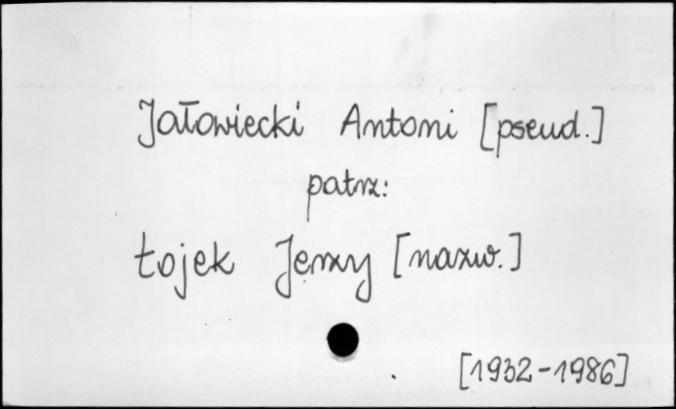 Jałowiecki Antoni [pseud.]
patrz:
Łojek Jerzy [nazw.]
[1932-1986]